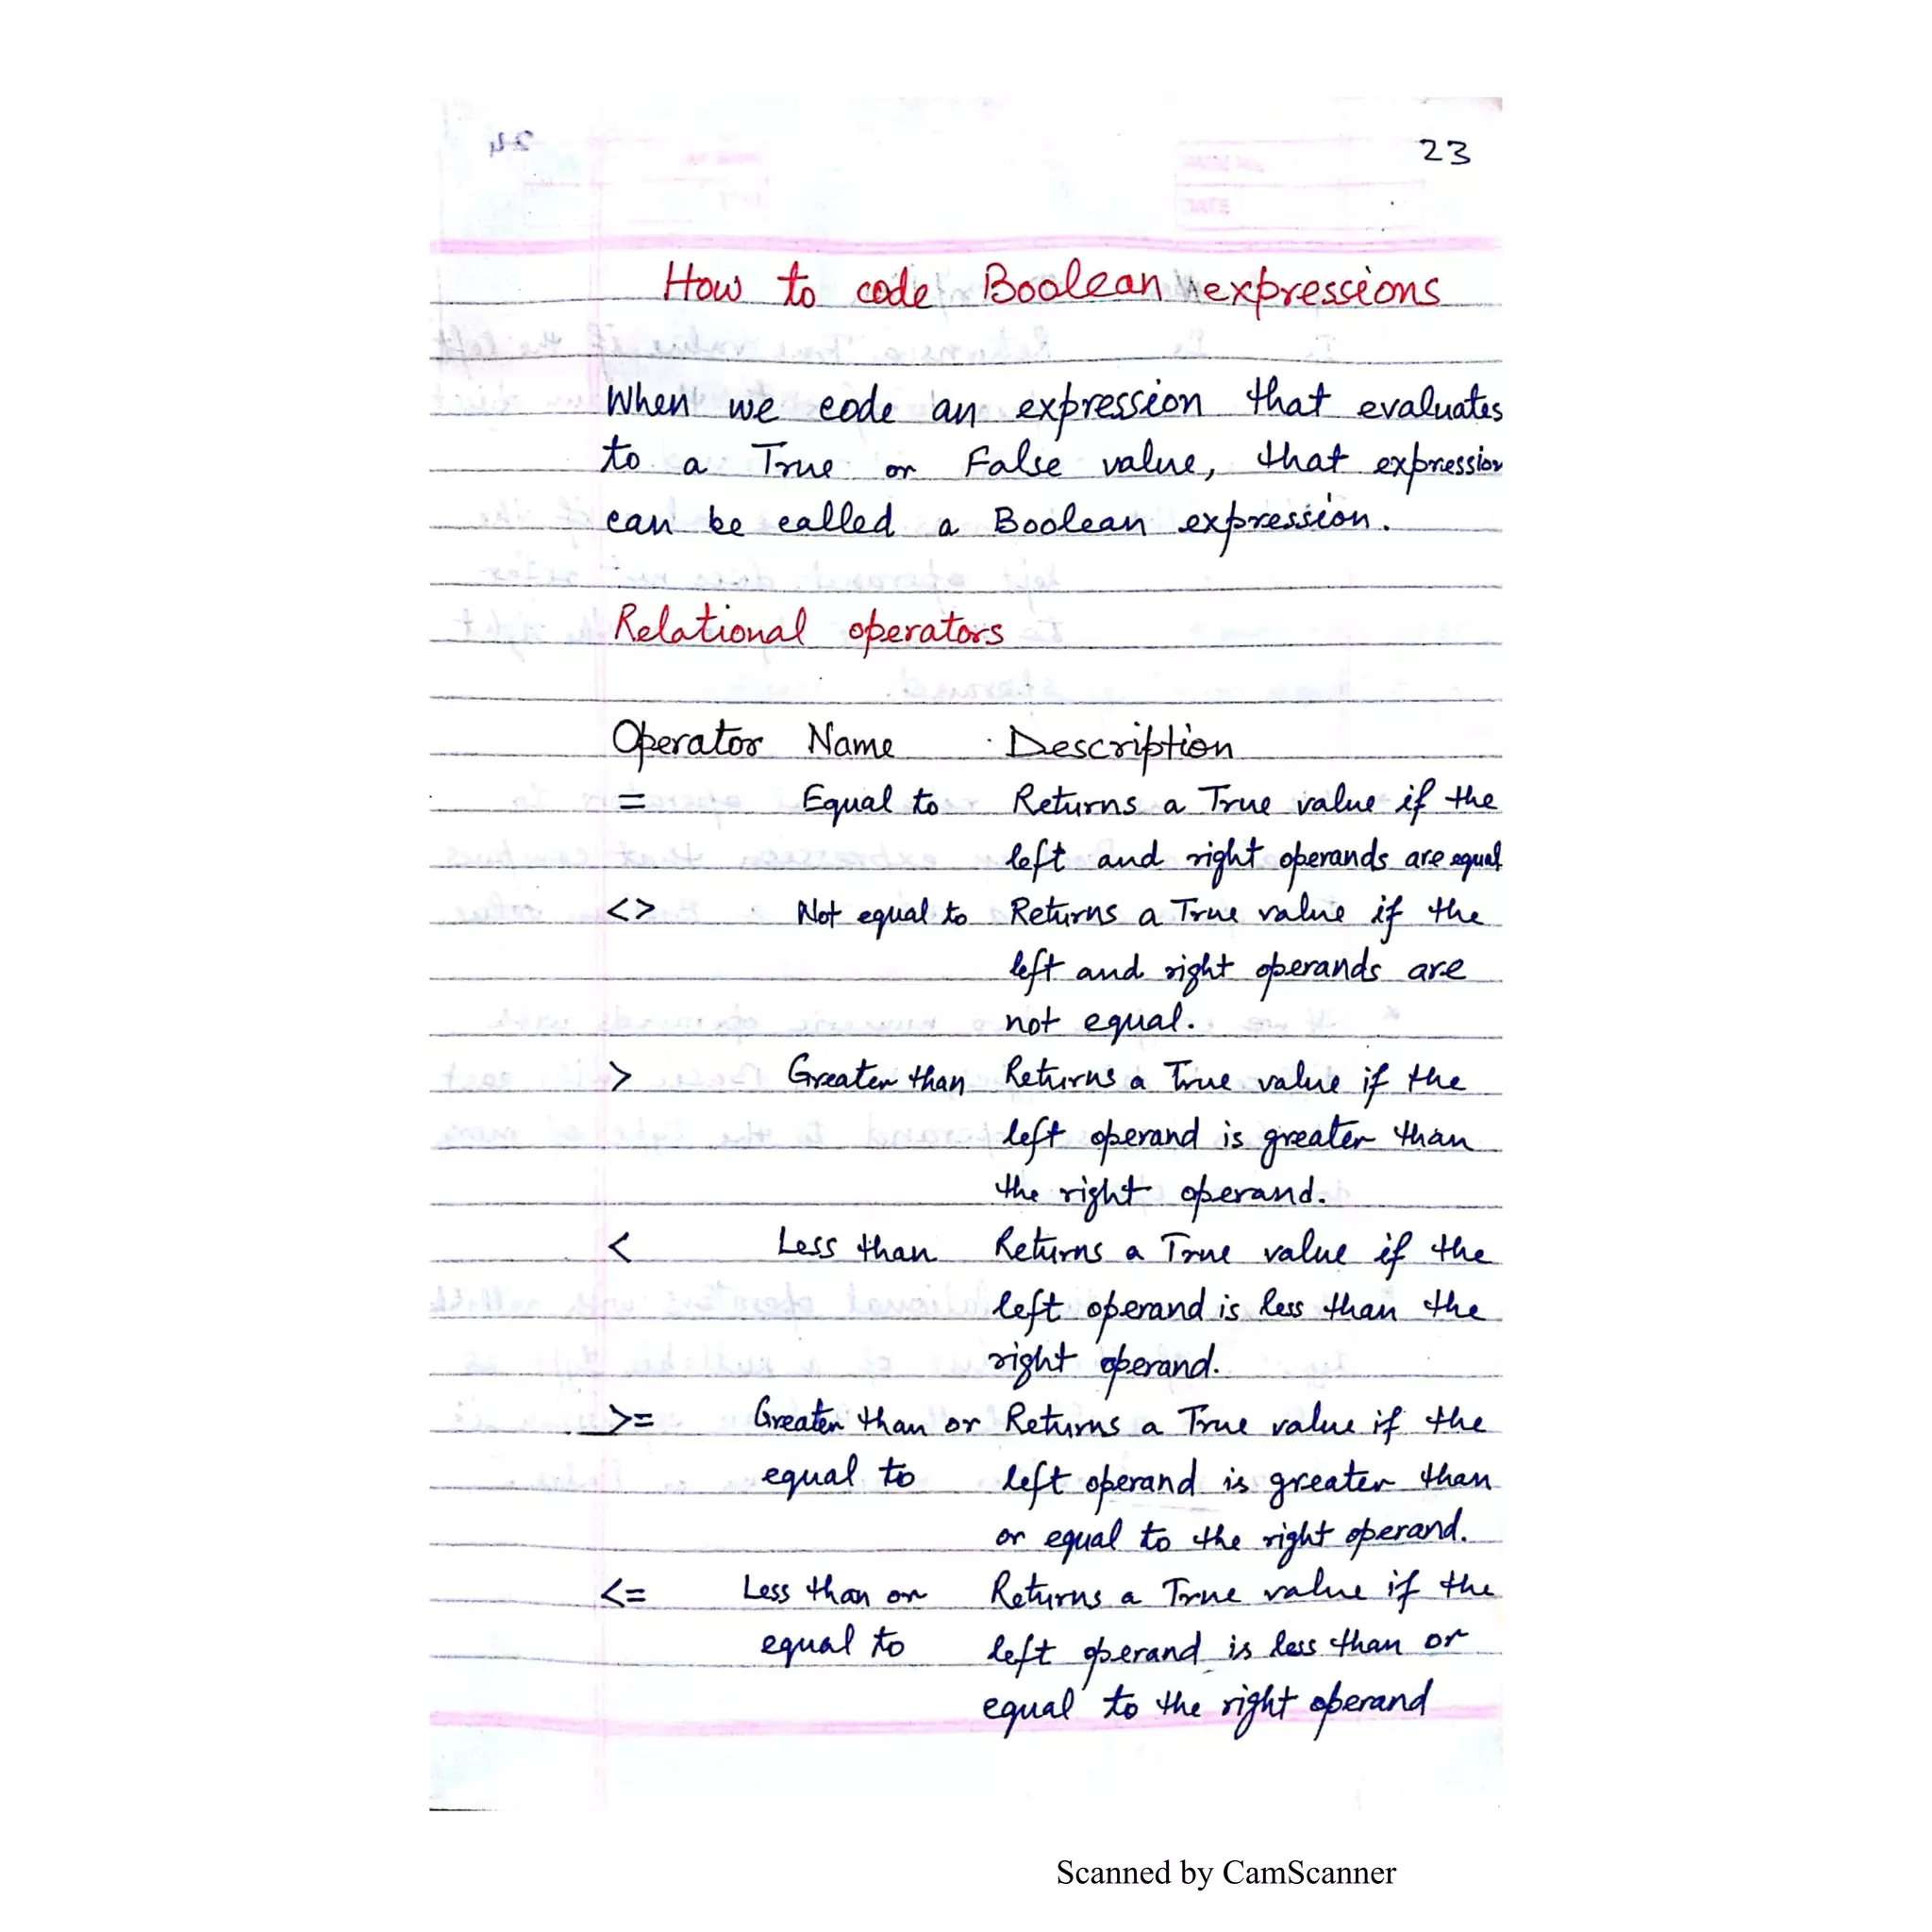 23
How to code Boolean expressions
When we code an expression that evaluates
to a True or False value, that expression
can be called a Boolean expression.
Relational operators
Operator Name Description
= Equal to Returns a True value if the
left and right operands are equal
<> Not equal to Returns a True value if the
left and right operands are
not equal.
> Greater than Returns a True value if the
left operand is greater than
the right operand.
< Less than Returns a True value if the
left operand is less than the
right operand.
>= Greater than or Returns a True value if the
equal to left operand is greater than
or equal to the right operand.
<= Less than or Returns a True value if the
equal to left operand is less than or
equal to the right operand
Scanned by CamScanner